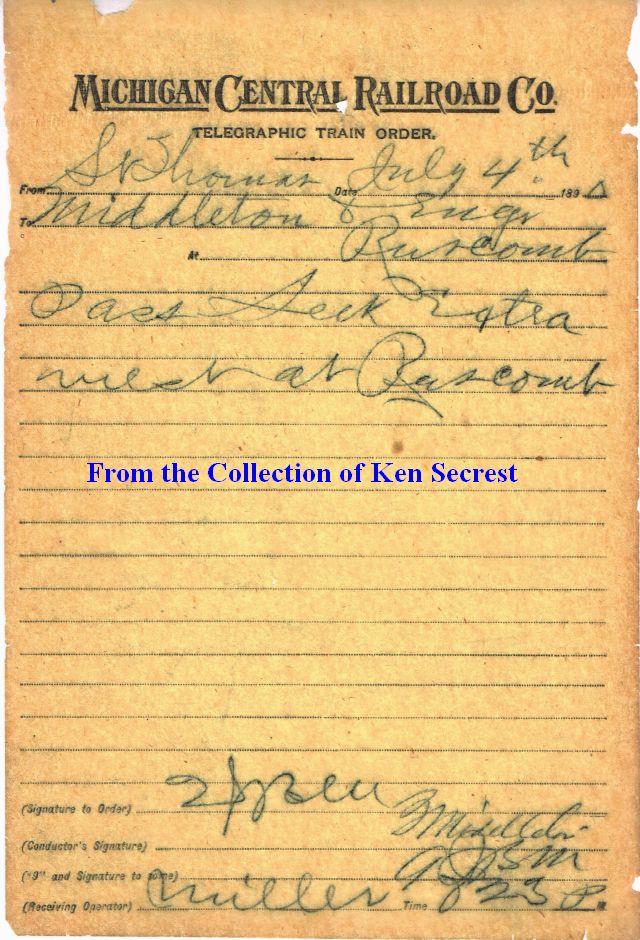 MICHIGAN CENTRAL RAILROAD CO.
TELEGRAPHIC TRAIN ORDER.
From St Thomas Date July 4th 189
To Middleton & Engr
At Ruscomb
Pass Extra
west at Ruscomb
From the Collection of Ken Secrest
(Signature to Order)
(Conductor's Signature) Middleton
("9" and Signature to same)
(Receiving Operator) Miller Time 823 P M.